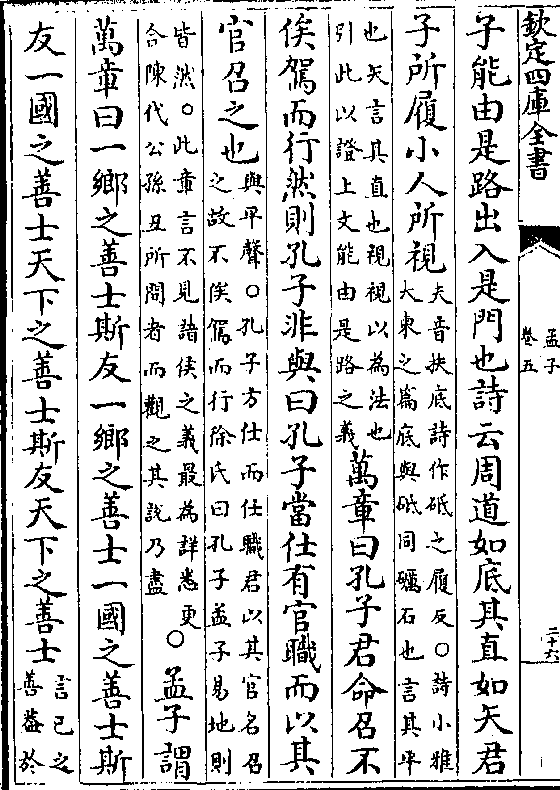 欽定四庫全書
孟子
卷五
二十六
子能由是路出入是門也詩云周道如底其直如矢君
子所履小人所視夫音扶底詩作砥之履反○詩小雅
大東之篇底與砥同礪石也言其平
也矢言其直也視視以為法也
引此以證上文能由是路之義萬章曰孔子君命召不
俟駕而行然則孔子非與曰孔子當仕有官職而以其
官召之也與平聲○孔子方仕而任職君以其官名召
之故不俟駕而行徐氏曰孔子孟子易地則
皆然○此章言不見諸侯之義最為詳悉更
合陳代公孫丑所問者而觀之其說乃盡○孟子謂
萬章曰一鄉之善士斯友一鄉之善士一國之善士斯
友一國之善士天下之善士斯友天下之善士言己之
善蓋於